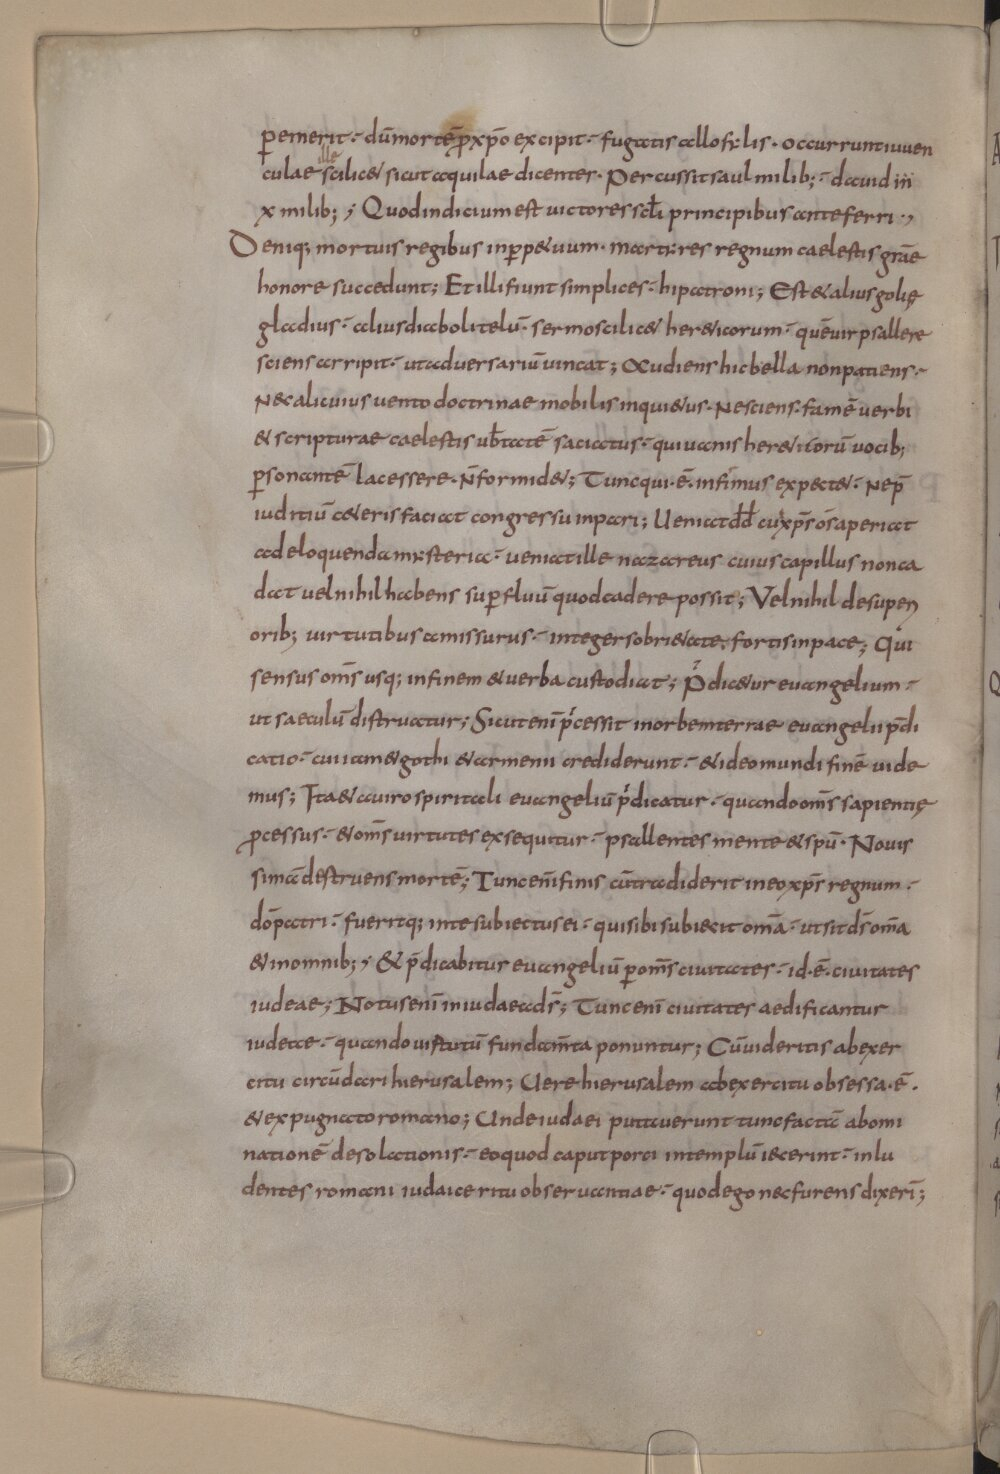 pemerit · dū mortē ꝓ xp̄o excipit · fugatis allofylis · occurrunt iuuen
culae ille scilicet sicut aquilae dicenter · Percussit saul milib; · dauid in
x milib; ; Quod indicium est uictores scłi principibus anteferri · ,
Deniq; mortuis regibus inꝑpetuum · martyres regnum caelestis grāe
honore succedunt; Et illi fiunt simplices · hi patroni; Est et alius golię
gladius · alius diaboli telū · sermo scilicet hereticorum · quē uir psallere
sciens arripit · ut aduersariū uincat; Audiens hic bella non patiens ·
Nec alicuius uento doctrinae mobilis inquietus · Nesciens famē uerbi
et scripturae caelestis ubtatē saciatus · qui uanis hereticorū uocib;
ꝑsonantē lacessere · n̄ formidet; Tunc qui · ē · infimus expectet · Ne p̄
iuditiū ceteris faciat congressu inpari; Ueniat dd̄ cū xp̄s os aperiat
ad eloquenda mysteria · ueniat ille nazareus cuius capillus non ca
dat uel nihil habens suꝑfluū quod cadere possit; Vel nihil de superi
orib; uirtutibus amissurus · integer sobrietate, fortis in pace; Qui
sensus om̄s usq; in finem et uerba custodiat; P̄dicetur euangelium ·
ut saeculū distruatur; Sicut enī p̄cessit in orbem terrae euangelii p̄di
catio · cui iam et gothi et armenii crediderunt · et ideo mundi finē uide
mus; Ita et a uiro spiritali euangeliū p̄dicatur · quando om̄s sapientię
ꝓcessus · et om̄s uirtutes exsequitur · psallentes mente et spū · Nouis
sima destruens mortē; Tunc enī finis cū tradiderit in eo xp̄s regnum ·
dō patri · fueritq; in te subiectus ei · qui sibi subiecit om̄a · ut sit ds̄ om̄a
et in omnib; ; Et p̄dicabitur euangeliū ꝑ om̄s ciuitates · id · ē · ciuitates
iudeae; Notus enī in iudaea ds̄; Tunc enī ciuitates aedificantur
iudeae · quando uistutū fundam̄ta ponuntur; Cū uideritis ab exer
citu circūdari hierusalem; Uere hierusalem ab exercitu obsessa · ē ·
et expugnato romano; Unde iudaei putauerunt tunc factā abomi
nationē desolationis · eo quod caput porci in templū iecerint · inlu
dentes romani iudaice ritu obseruantiae · quod ego nec furens dixerī;